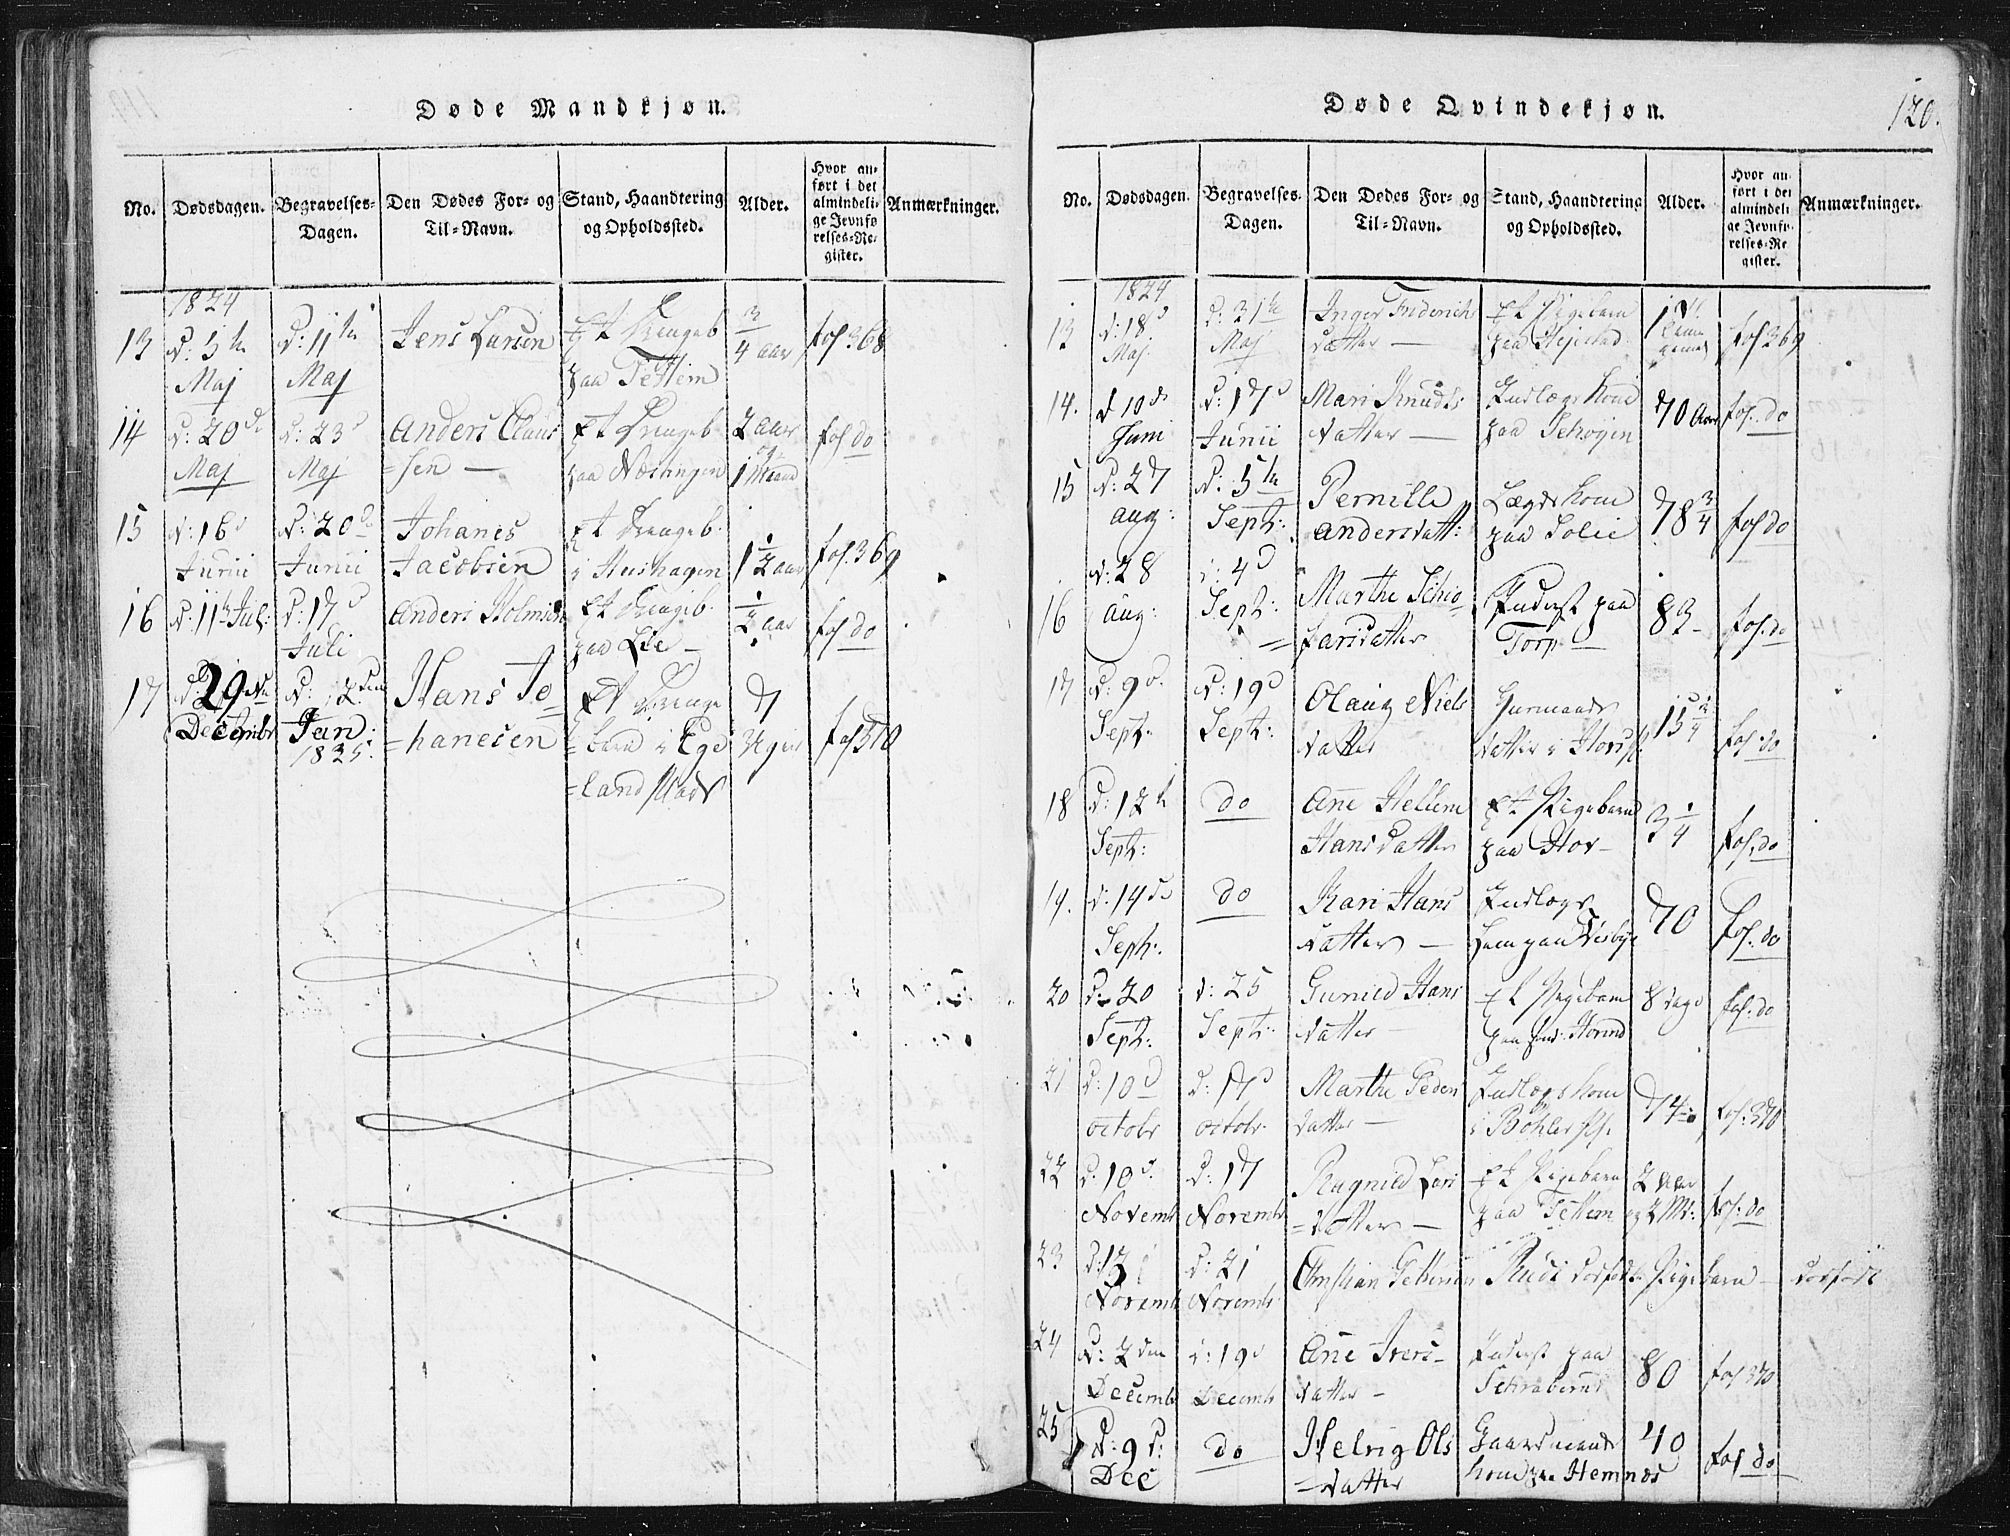 Døde Mandkjøn.
No. Dødsdagen. Begravelses-Dagen. Den Dødes For- og Til-Navn. Stand, Haandtering og Opholdssted. Alder. Hvor anført i det almindelige Jevnførelses-Register. Anmærkninger.
1824
13 d: 5te Maj d: 11te Maj Jens Larsen Et Drengeb paa Tettem 3/4 aar fol 368
14 d: 20de Maj d: 23d Maj Anders Claus=sen — Et Drengeb paa Næstingen 2 aar og 1 Maaned fol do
15 d: 16d Junii d: 20de Junii Johanes Jacobsen Et Drengeb. i Hushagen 1 1/2 aar fol. 369
16 d: 11te Jul: d: 17d Juli Anders Holmsen Et Drengeb. paa Lie — 1/2 aar fol do
17 d 29de Decembr d: 12den Jan: 1825. Hans Jo=hanesen Et Drenge=barn i Ege=land plads 7 Uger fol 370
Døde Qvindekjøn.
120.
No. Dødsdagen. Begravelses-Dagen. Den Dødes For- og Til-Navn. Stand, Haandtering og Opholdssted. Alder. Hvor anført i det almindelige Jevnførelses-Register. Anmærkninger.
1824
13 d: 18d Maj. d: 21de Maj Inger Friderichs datter — Et Pigebarn paa fol 369
14. d 10de Juni d: 17d Junii Mari Knuds datter — Indlægs Kone paa Schogen 70 Aar fol: do
15 d: 27 aug: d: 5te Septr: Pernille Andersdatt: Lægds kone paa Solie 78 3/4 fol do
16 d: 28 aug: d: 4d Septr: Marthe datter Inderst paa Torp — 83 — fol. do
17 d: 9d. Septr. d: 19d Septr. Olaug Niels datter Huusmands datter i 15 3/4 fol: do
18 d: 12te Septr: do Ane Hellene Hansdatter Et Pigebarn paa Hov — 3 1/4 fol. do
19. d: 14de Septr: do Kari Hans datter — Indlægs Lem paa Wisbye 70 fol: do
20 d: 20 Septr: d: 25 Septr: Gunild Hans datter — Et Pigebarn paa 8 dage fol: do
21 d: 10d octobr d: 17d octobr. Marthe Peders datter — Indlægs kone i Bøhler 74 fol: 370
22 d: 10d. Novembr d: 17 Novembr Ragnild Lars=datter — Et Pigebarn paa Tettem 2 aar og 2 Mdr: fol: do
23 d: Novembr d: 21 Novembr Christian dødfødte Pigebarn — dødfødt
24 d: 2den Decembr d: 19d Decembr Ane Ivers=datter — Inderst paa 80 fol 370
25 d: 9d: Dec do Helvig Ols=datter Gaardmands kone paa Hemnæs 40 fol do